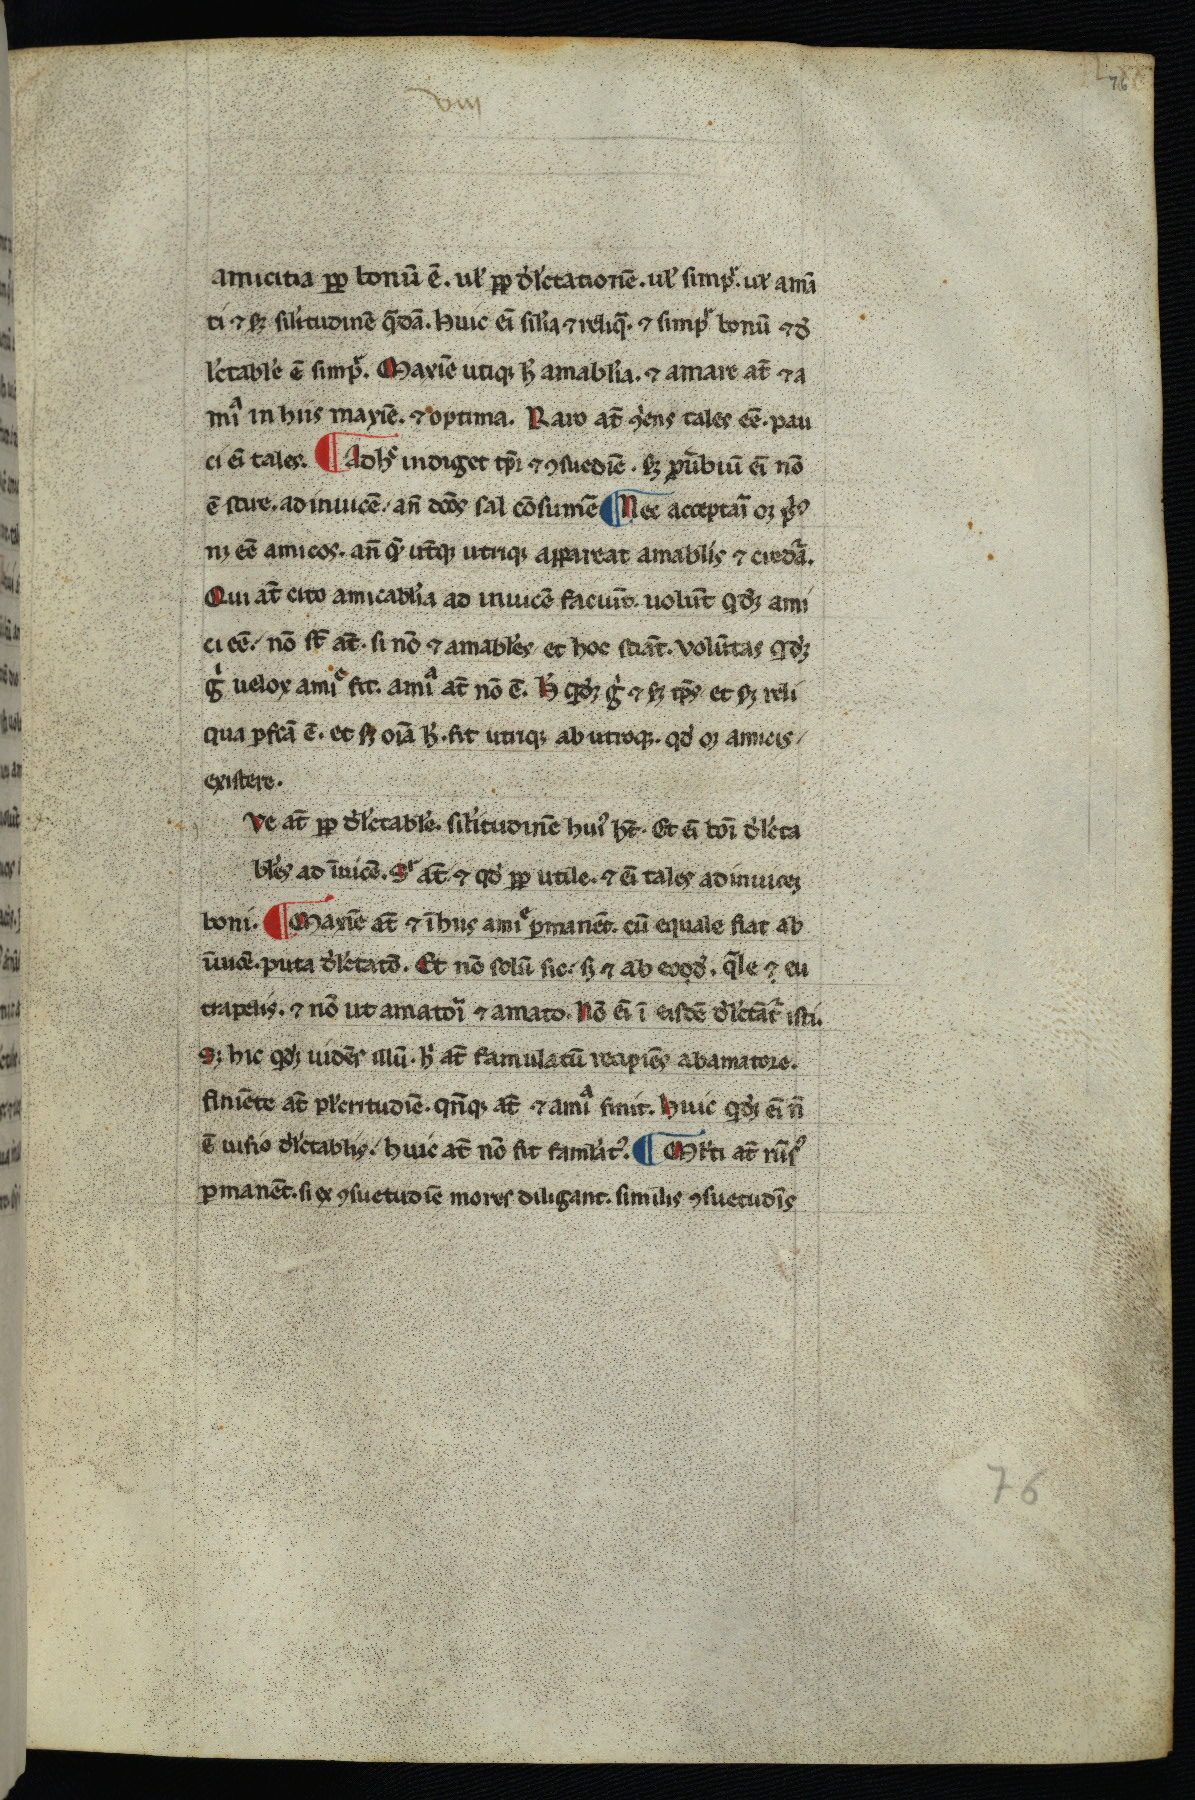 viii
76
amicitia ꝓp bonū ē. uł ꝓp dl̓ectationē. uł simpͬ. uł amā
ti ⁊ sꝫ sil̓itudinē q̄dā. huic ei̅ silia ⁊ reliq̄. ⁊ simpͬ bonū ⁊ d̓
l̓ectabl̓e ē simpͬ. Maxīe utiqꝫ h̓ amabl̓ia. ⁊ amare at̄ ⁊ a
miͣ in hiis maxīe. ⁊ optima. Raro at̄ ꝯ̓ens tales eē. pau
ci ei̅ tales. ¶ Adhͨ indiget tp̄r ⁊ ꝯsuedīe. sꝫ ꝓu̓biū ei̅ nō
ē scire. adinuicē / an̄ dc̄os sal cōsumē ¶ Nec acceptaī oꝫ pͥꝰ
nꝫ eē amicos. an̄ q̄ ut̓qꝫ utriqꝫ appareat amabl̓is ⁊ credāͬ.
Qui at̄ cito amicabl̓ia ad inuicē faciūt. uolūt qd̓ꝫ ami
ci eē / nō st̄ at̄. si nō ⁊ amabl̓es / et hoc sciāt. volūtas qd̓ꝫ
gͥ uelox amiͨ fit. amiͣ at̄ nō ē. h̓ qd̓ꝫ gͥ ⁊ sꝫ tp̄s / et sꝫ reli
qua ꝑfcā ē. et sꝫ oīa h̓. fit utriqꝫ ab utroqꝫ. qd̓ oꝫ amicis /
existere.
Ve at̄ ꝓp dl̓ectabl̓e. sil̓itudinē huiꝰ hͭ. Et ei̅ boī dl̓ecta
bl̓es ad īuicē. Sͬ at̄ ⁊ qd̓ ꝓp utile. ⁊ ei̅ tales adinuiceꝫ
boni. ¶ Maxīe at̄ ⁊ ī hiis amiͨ ꝑmanēt. cū equale fiat ab
īuicē. puta dl̓ectatō. Et nō solū sic / sꝫ ⁊ ab eod̓. q̄le ⁊ eu
trapelis. ⁊ nō ut amatoī ⁊ amato. Nō ei̅ ī eisdē dl̓ectātͬ isti.
Sꝫ hic qd̓ꝫ uidēs illū. h̓ at̄ famulatū recipiēs ab amatore.
finiēte at̄ pl̓critudīe. qn̄qꝫ at̄ ⁊ amiͣ finit. huic qd̓ꝫ ei̅ n̄
ē uisio dl̓ectabl̓is / huic at̄ nō fit famlat̓ꝰ. ¶ Ml̓ti at̄ rūsꝰ
ꝑmanēt. si ex ꝯsuetudīe mores diligant. similis ꝯsuetudīs
76